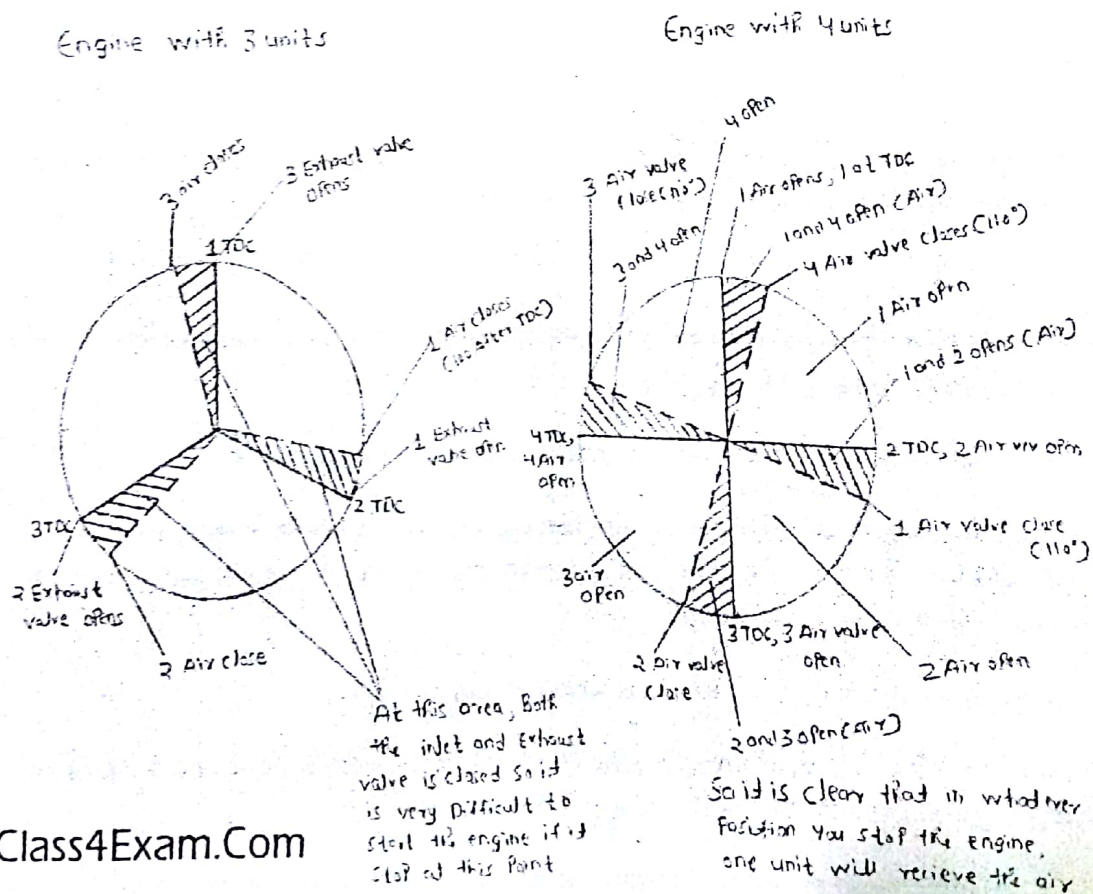 Engine with 3 units
3 air closes
3 Exhaust valve
opens
1 TDC
1 Air closes
after TDC)
1 Exhaust
valve opn.
2 TDC
3 TDC
2 Exhaust
valve opens
2 Air close
At this area, Both
the inlet and Exhaust
valve is closed so it
is very Difficult to
start the engine if it
stop at this Point
Engine with 4 units
4 open
3 Air valve
close (110°)
3 and 4 open
1 Air opens, 1 at TDC
1 and 4 open (Air)
4 Air valve closes (110°)
1 Air open
1 and 2 opens (Air)
4 TDC,
4 Air
open
2 TDC, 2 Air vlv open
1 Air valve close
(110°)
3 air
open
3 TDC, 3 Air valve
open
2 Air valve
close
2 Air open
2 and 3 open (Air)
So it is clear that in whatever
Position you stop the engine,
one unit will recieve the air
Class4Exam.Com